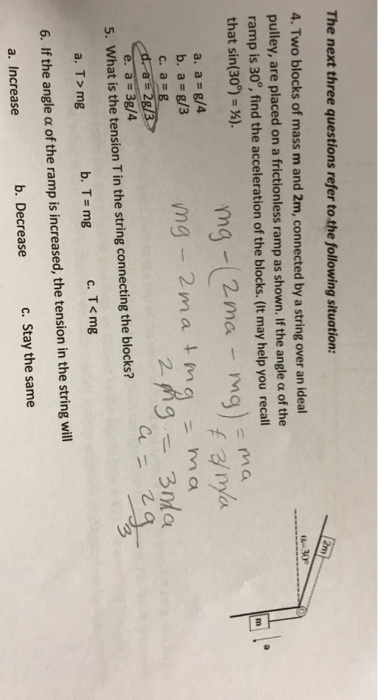 The next three questions refer to the following situation:
4. Two blocks of mass m and 2m, connected by a string over an ideal
pulley, are placed on a frictionless ramp as shown. If the angle α of the
ramp is 30⁰, find the acceleration of the blocks. (It may help you recall
that sin(30⁰) = ½).
2m
α=30⁰
m
a
mg - (2ma - mg) = ma
a. a = g/4
b. a = g/3
c. a = g
d. a = 2g/3
e. a = 3g/4
mg - 2ma + mg = ma
2mg = 3ma
a = 2g
3
5. What is the tension T in the string connecting the blocks?
a. T > mg b. T = mg c. T < mg
6. If the angle α of the ramp is increased, the tension in the string will
a. Increase b. Decrease c. Stay the same